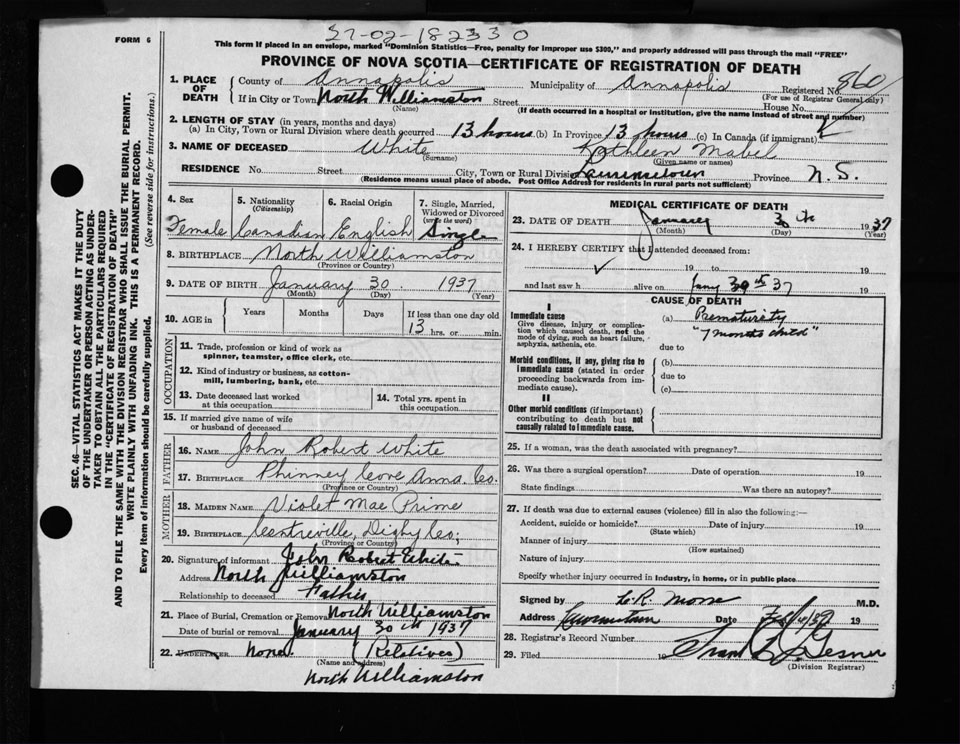 37-02-182330
FORM 6
This form if placed in an envelope, marked "Dominion Statistics—Free, penalty for improper use $300," and properly addressed will pass through the mail "FREE"
PROVINCE OF NOVA SCOTIA—CERTIFICATE OF REGISTRATION OF DEATH
1. PLACE OF DEATH County of Annapolis Municipality of Annapolis Registered No. 860
(For use of Registrar General only)
If in City or Town North Williamston Street House No.
(Name) (If death occurred in a hospital or institution, give the name instead of street and number)
2. LENGTH OF STAY (in years, months and days)
(a) In City, Town or Rural Division where death occurred 13 hours (b) In Province 13 hours (c) In Canada (if immigrant)
3. NAME OF DECEASED White Kathleen Mabel
(Surname) (Given name or names)
RESIDENCE No. Street City, Town or Rural Division Lawrencetown Province N. S.
(Residence means usual place of abode. Post Office Address for residents in rural parts not sufficient)
SEC. 46—VITAL STATISTICS ACT MAKES IT THE DUTY
OF THE UNDERTAKER OR PERSON ACTING AS UNDER-
TAKER TO OBTAIN ALL THE PARTICULARS REQUIRED
IN THE "CERTIFICATE OF REGISTRATION OF DEATH"
AND TO FILE THE SAME WITH THE DIVISION REGISTRAR WHO SHALL ISSUE THE BURIAL PERMIT.
WRITE PLAINLY WITH UNFADING INK. THIS IS A PERMANENT RECORD.
Every item of information should be carefully supplied. (See reverse side for instructions.)
4. Sex 5. Nationality (Citizenship) 6. Racial Origin 7. Single, Married, Widowed or Divorced (write the word)
Female Canadian English Single
8. BIRTHPLACE North Williamston
(Province or Country)
9. DATE OF BIRTH January 30 1937
(Month) (Day) (Year)
10. AGE in Years Months Days If less than one day old
13 hrs. or min.
OCCUPATION
11. Trade, profession or kind of work as
spinner, teamster, office clerk, etc.
12. Kind of industry or business, as cotton-
mill, lumbering, bank, etc.
13. Date deceased last worked at this occupation 14. Total yrs. spent in this occupation
15. If married give name of wife
or husband of deceased
FATHER
16. NAME John Robert White
17. BIRTHPLACE Phinney Cove Anna. Co.
(Province or Country)
MOTHER
18. MAIDEN NAME Violet Mae Prime
19. BIRTHPLACE Centreville, Digby Co;
(Province or Country)
20. Signature of informant John Robert White
Address North Williamston
Relationship to deceased Father
21. Place of Burial, Cremation or Removal North Williamston
Date of burial or removal January 30th 1937
22. UNDERTAKER None (Relatives)
(Name and address)
North Williamston
MEDICAL CERTIFICATE OF DEATH
23. DATE OF DEATH January 30th 1937
(Month) (Day) (Year)
24. I HEREBY CERTIFY that I attended deceased from:
19 to 19
and last saw h alive on Jany 30th 37 19
CAUSE OF DEATH
I
Immediate cause (a) Prematurity
Give disease, injury or complica-
tion which caused death, not the
mode of dying, such as heart failure,
asphyxia, asthenia, etc.
"7 months child"
due to
Morbid conditions, if any, giving rise to
immediate cause (stated in order
proceeding backwards from im-
mediate cause).
(b)
due to
(c)
II
Other morbid conditions (if important)
contributing to death but not
causally related to immediate cause.
25. If a woman, was the death associated with pregnancy?
26. Was there a surgical operation? Date of operation 19
State findings Was there an autopsy?
27. If death was due to external causes (violence) fill in also the following:—
Accident, suicide or homicide? Date of injury 19
(State which)
Manner of injury
(How sustained)
Nature of injury
Specify whether injury occurred in industry, in home, or in public place
Signed by L.R. Morse M.D.
Address Date 19
28. Registrar's Record Number
29. Filed 19 Gesner
(Division Registrar)